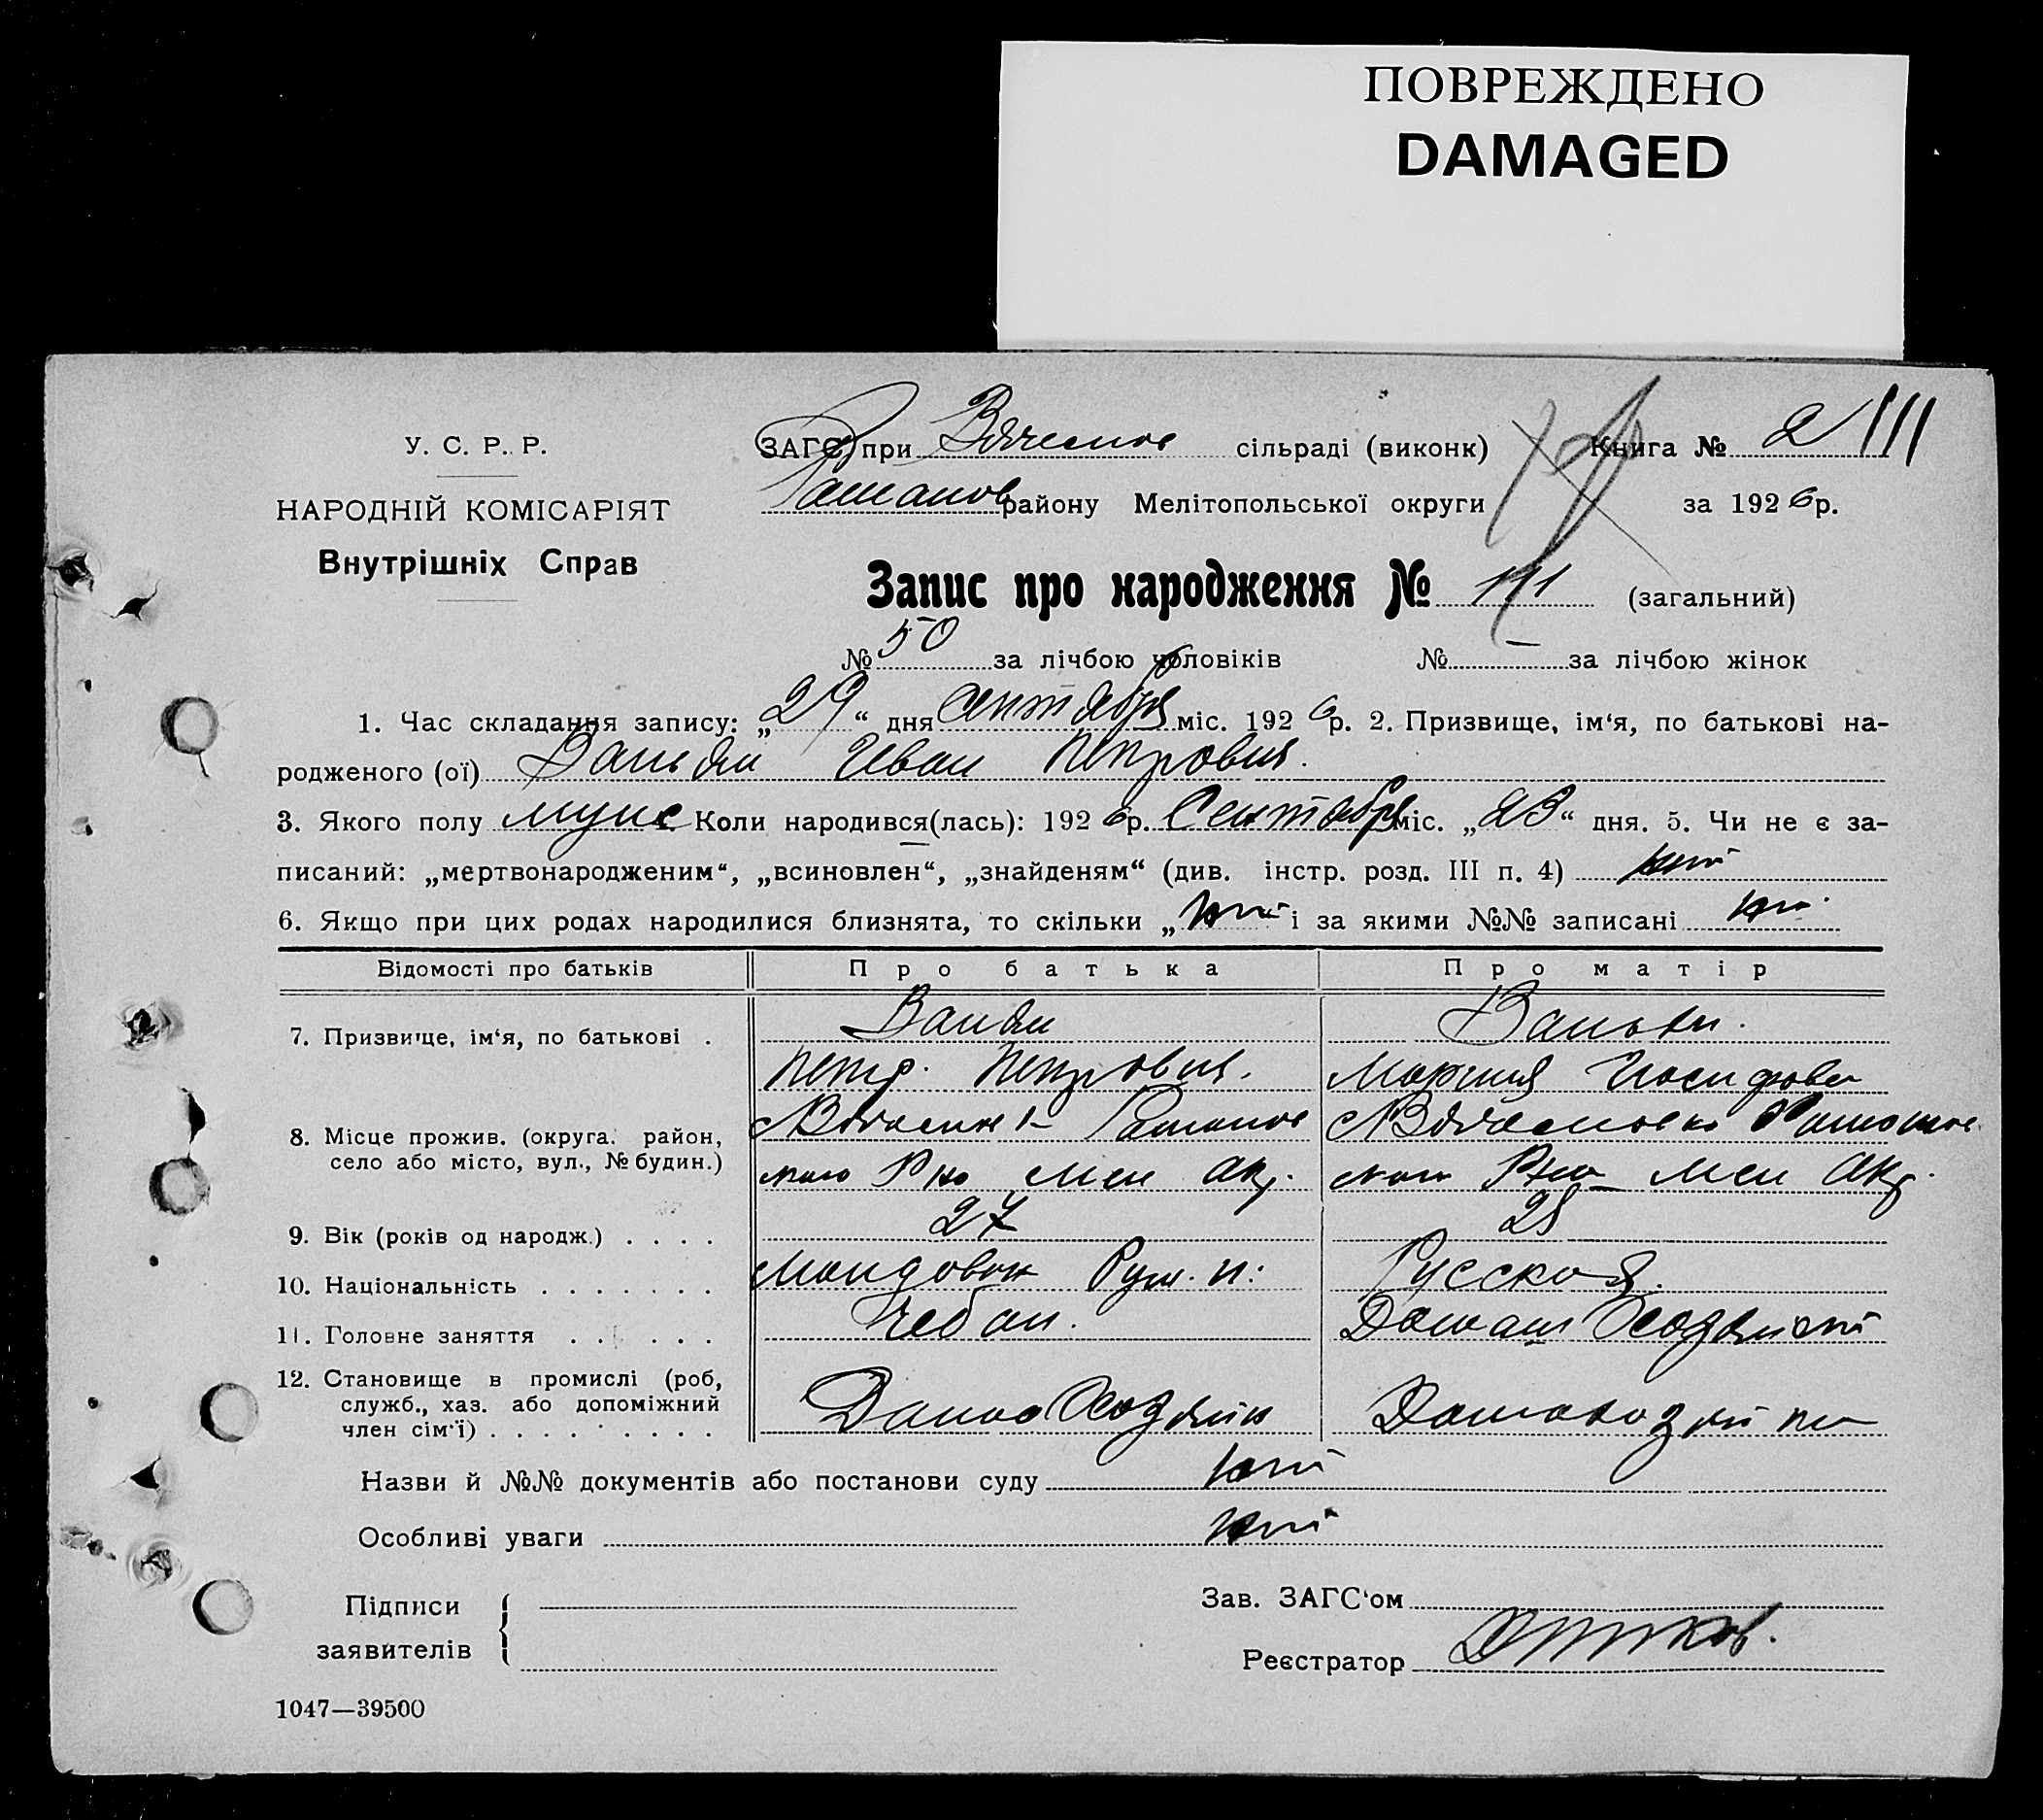 ПОВРЕЖДЕНО
DAMAGED
У. С. Р. Р.
НАРОДНІЙ КОМІСАРІЯТ
Внутрішніх Справ
ЗАГС при сільраді (виконк) Книга № 2 111
району Мелітопольської округи за 1926 р.
Запис про народження № 111 (загальний)
№ 50 за лічбою чоловіків № — за лічбою жінок
1. Час складання запису: „29“ дня Сентября міс. 1926 р. 2. Призвище, ім‘я, по батькові на-
родженого (ої) Иван Петрович.
3. Якого полу муж Коли народився(лась): 1926 р. Сентября міс. „23“ дня. 5. Чи не є за-
писаний: „мертвонародженим“, „всиновлен“, „знайденям“ (див. інстр. розд. III п. 4) нет
6. Якщо при цих родах народилися близнята, то скільки „нет і за якими №№ записані нет
Відомості про батьків Про батька Про матір
7. Призвище, ім‘я, по батькові .
Петр. Петрович. Мария Иосифова
8. Місце прожив. (округа. район,
село або місто, вул., № будин.)
Р-на Мел Окр. Р-на Мел Окр.
9. Вік (років од народж.) . . . . 27
10. Національність . . . . . . . Русская.
11. Головне заняття . . . . . . Чебан. Домаш Хозяйст
12. Становище в промислі (роб,
служб., хаз. або допоміжний
член сім‘ї) . . . . . . . . . Домохозяин Домохозяйка
Назви й №№ документів або постанови суду нет
Особливі уваги нет
Підписи
заявителів
Зав. ЗАГС‘ом
Реєстратор
1047—39500